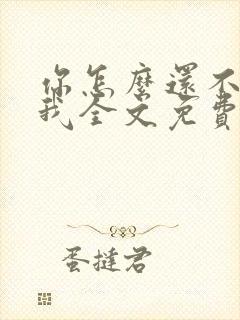 你怎麼還不
我全文免費
蛋撻君